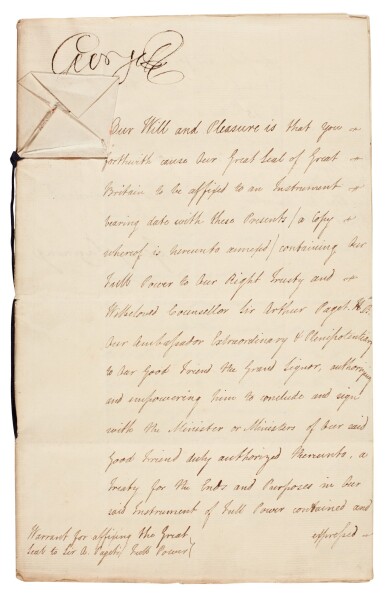 George R
Our Will and Pleasure is that You
forthwith cause Our Great Seal of Great
Britain to be affixed to an Instrument
bearing date with these Presents (a Copy
whereof is hereunto annexed) containing Our
Full Power to Our Right Trusty and
Wellbeloved Counsellor Sir Arthur Paget K.B.
Our Ambassador Extraordinary & Plenipotentiary
to Our Good Friend the Grand Signor, authorizing
and empowering him to conclude and sign
with the Minister or Ministers of Our said
Good Friend duly authorized thereunto, a
Treaty for the Ends and Purposes in Our
said Instrument of Full Power contained and
expressed —
Warrant for affixing the Great
Seal to Sir A. Paget's Full Power